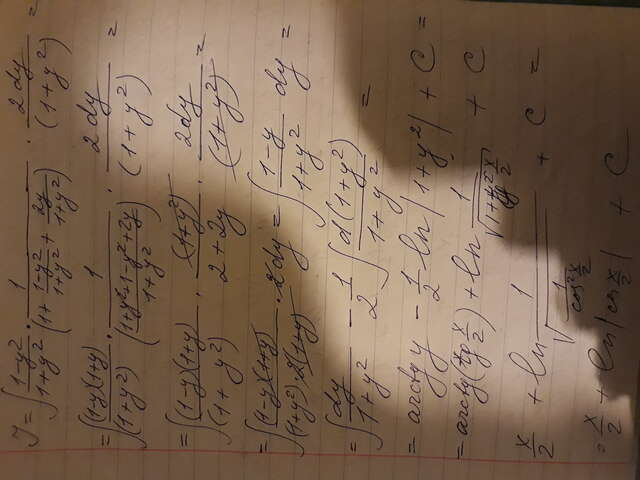 J = ∫ (1-y²)/(1+y²) · 1/(1 + (1-y²)/(1+y²) + 2y/(1+y²)) · 2dy/(1+y²) =
= ∫ (1-y)(1+y)/(1+y²) · 1/((1+y²+1-y²+2y)/(1+y²)) · 2dy/(1+y²) =
= ∫ (1-y)(1+y)/(1+y²) · (1+y²)/(2+2y) · 2dy/(1+y²) =
= ∫ (1-y)(1+y)/((1+y²)·2(1+y)) · 2dy = ∫ (1-y)/(1+y²) dy =
= ∫ dy/(1+y²) - 1/2 ∫ d(1+y²)/(1+y²) =
= arctg y - 1/2 ln|1+y²| + C =
= arctg(tg x/2) + ln 1/√(1+tg² x/2) + C
x/2 + ln 1/√(1/cos² x/2) + C =
= x/2 + ln|cos x/2| + C